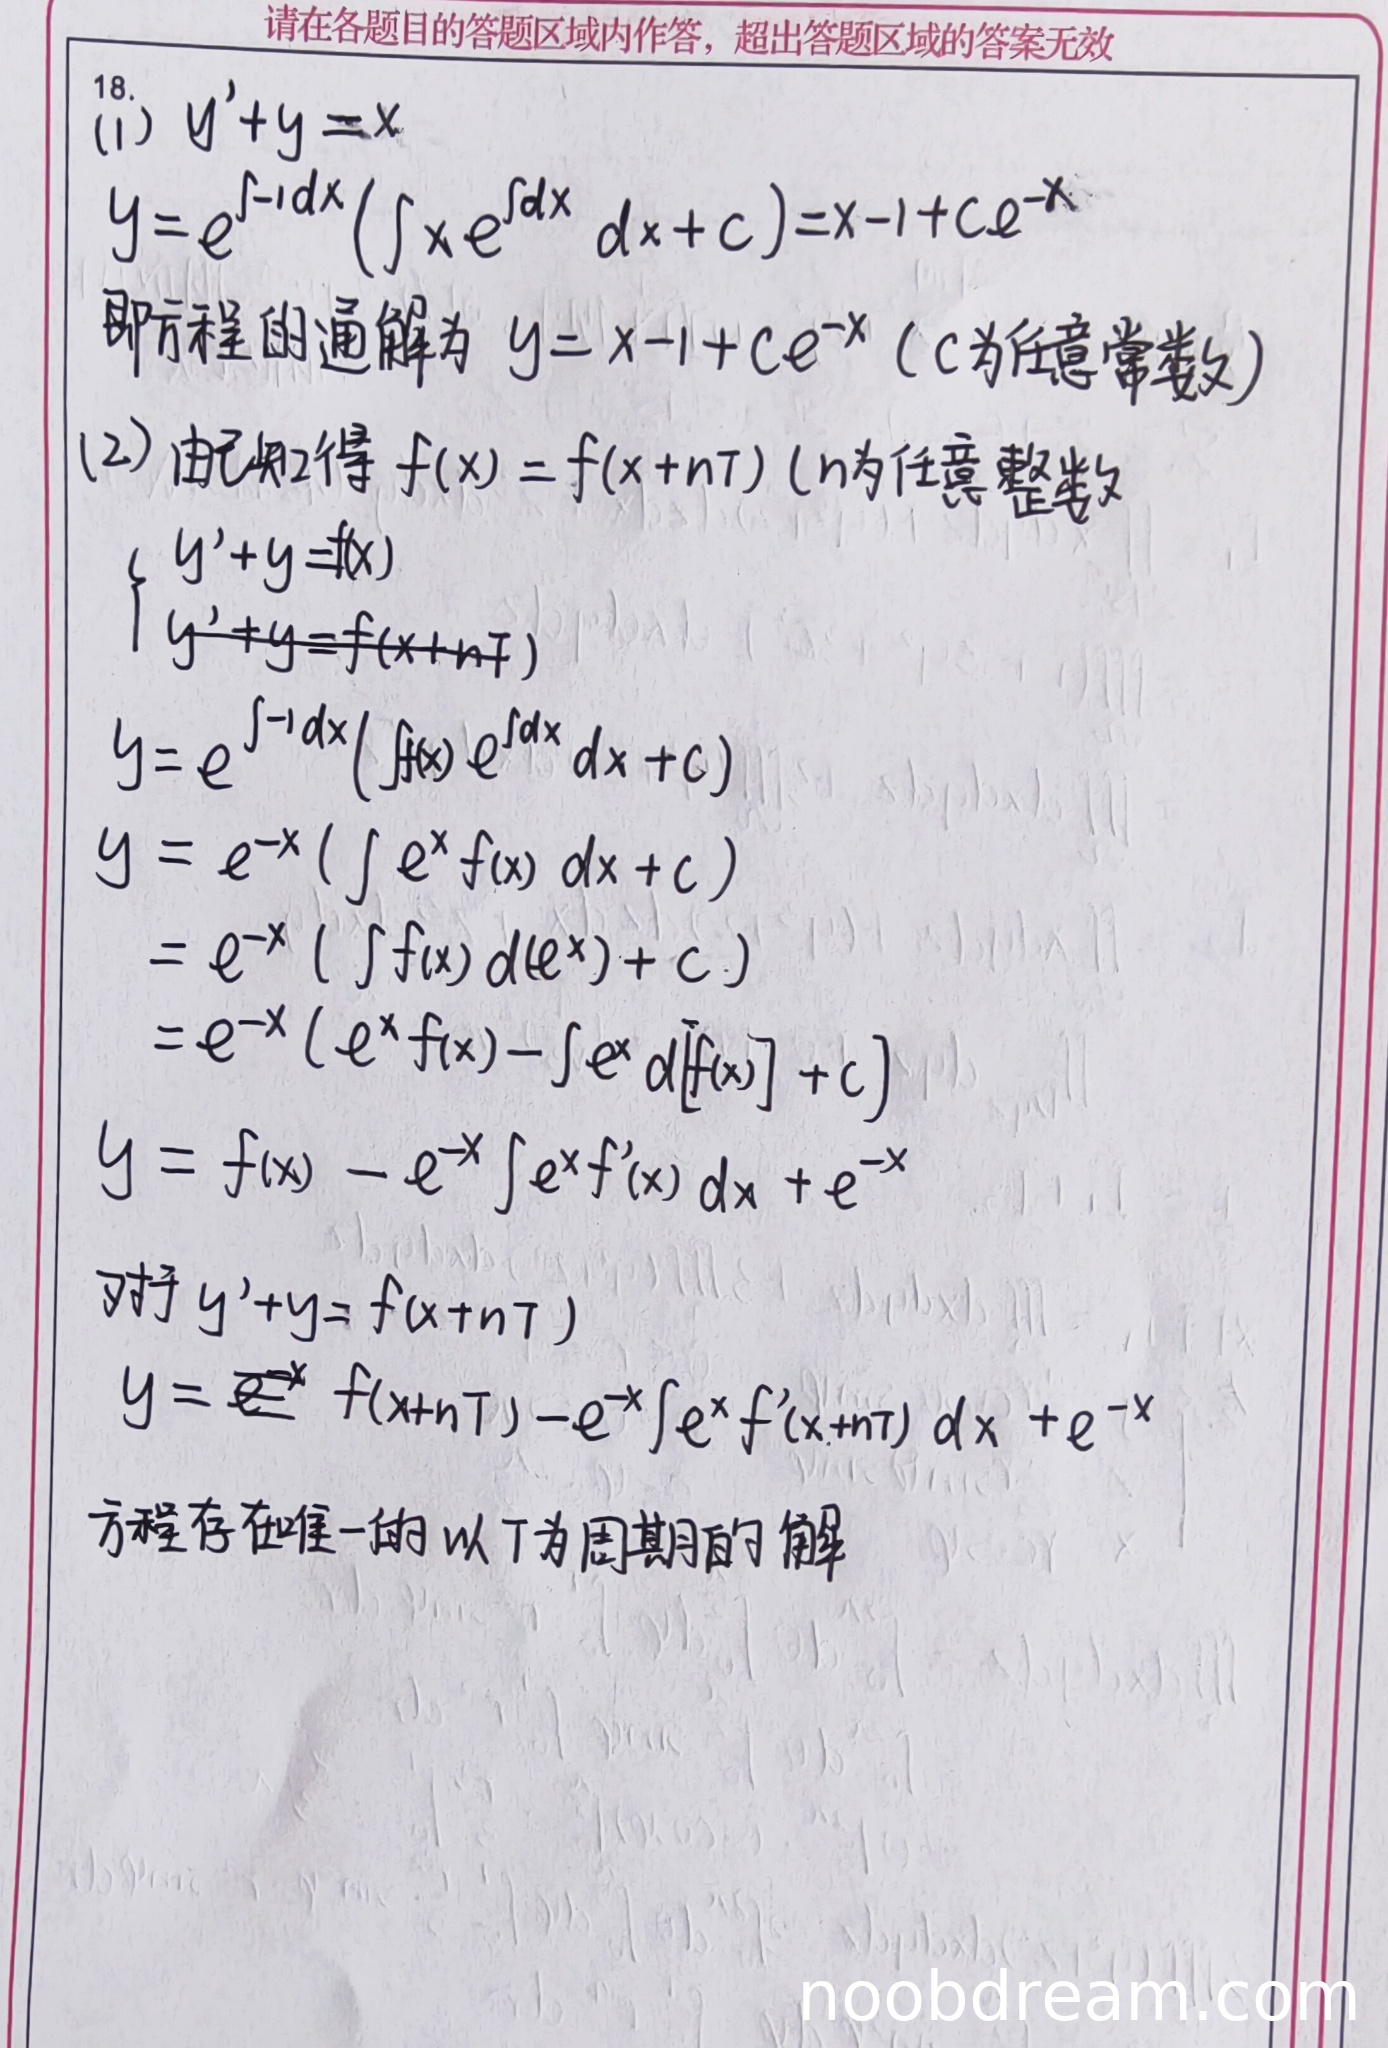 请在各题目的答题区域内作答，超出答题区域的答案无效
18.
(1) y'+y=x
y=e^{∫-1dx}(∫xe^{∫dx} dx+c)=x-1+ce^{-x}
即方程的通解为 y=x-1+ce^{-x} (c为任意常数)
(2) 由已知得 f(x)=f(x+nT) (n为任意整数
{ y'+y=f(x)
y'+y=f(x+nT)
y=e^{∫-1dx}(∫f(x)e^{∫dx}dx+c)
y=e^{-x}(∫e^x f(x) dx+c)
=e^{-x}(∫f(x)d(e^x)+c)
=e^{-x}(e^x f(x)-∫e^x d[f(x)]+c]
y=f(x)-e^{-x}∫e^x f'(x)dx+e^{-x}
对于 y'+y=f(x+nT)
y= e^{-x} f(x+nT)-e^{-x}∫e^x f'(x+nT) dx+e^{-x}
方程存在唯一的以T为周期的解
noobdream.com